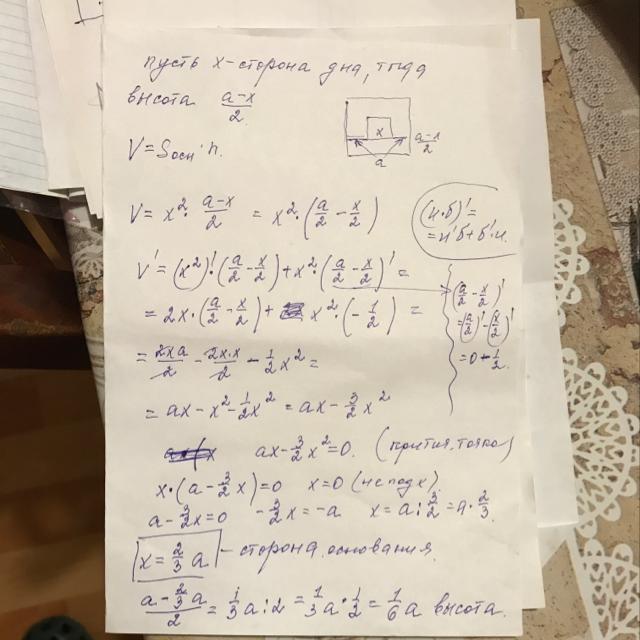 пусть x-сторона дна, тогда
высота (a-x)/2
V = Sосн · h.
x
(a-x)/2
a
V = x² · (a-x)/2 = x² · (a/2 - x/2)
(u·v)' =
= u'v + v'·u.
V' = (x²)' · (a/2 - x/2) + x² · (a/2 - x/2)' =
= 2x · (a/2 - x/2) + x² · (-1/2) =
(a/2 - x/2)'
= (a/2)' - (x/2)'
= 0 - 1/2.
= 2xa/2 - 2x·x/2 - 1/2 x² =
= ax - x² - 1/2 x² = ax - 3/2 x²
ax - 3/2 x² = 0.
x · (a - 3/2 x) = 0 x = 0 (не подх)
a - 3/2 x = 0 -3/2 x = -a x = a : 3/2 = a · 2/3.
x = 2/3 a - сторона основания.
(a - 2/3 a)/2 = 1/3 a : 2 = 1/3 a · 1/2 = 1/6 a высота.